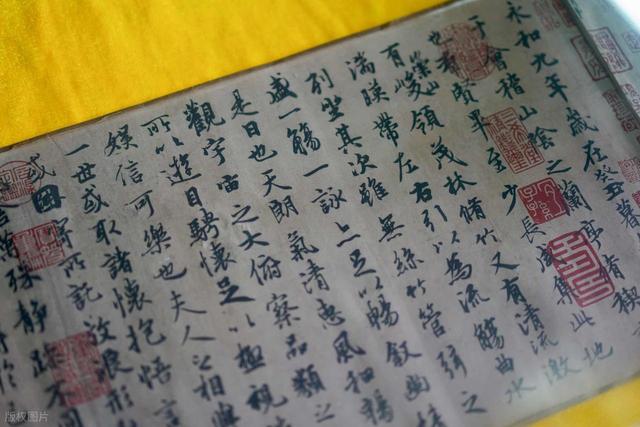 永和九年歲在癸丑暮
于會稽山陰之蘭亭脩禊
也羣賢畢至少長咸集此地
有崇山峻領茂林脩竹又有清流激
湍暎帶左右引以為流觴曲水
列坐其次雖無絲竹管弦之
盛一觴一詠亦足以暢叙幽情
是日也天朗氣清惠風和暢
觀宇宙之大俯察品類之
所以遊目騁懷足以極視
娛信可樂也夫人之相與
一世或取諸懷抱悟言
或因寄所託放浪形
萬殊靜躁不同
版权图片